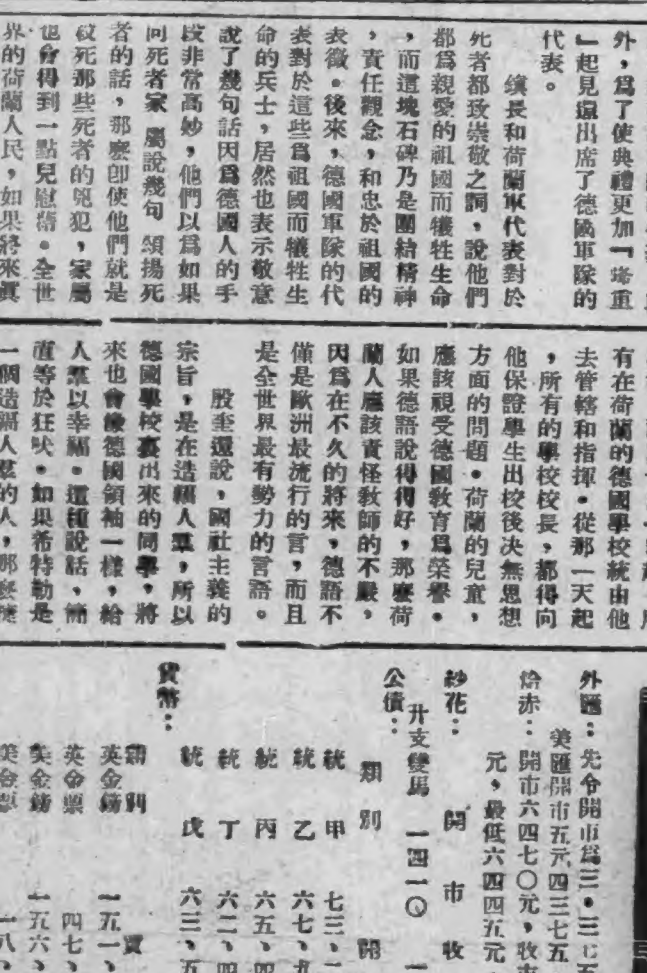 外，爲了使典禮更加『嚴重
』起見還出席了德國軍隊的
代表。
鎮長和荷蘭軍代表對於
死者都致崇敬之詞，說他們
都爲親愛的祖國而犧牲生命
，而這塊石碑乃是團結精神
，責任觀念，和忠於祖國的
表徵。後來，德國軍隊的代
表對於這些爲祖國而犧牲生
命的兵士，居然也表示敬意
說了幾句話因爲德國人的手
段非常高妙，他們以爲如果
向死者家屬說幾句頌揚死
者的話，那麽卽使他們就是
殺死那些死者的兇犯，家屬
也會得到一點兒慰藉。全世
界的荷蘭人民，如果將來眞
有在荷蘭的德國學校統由他
去管轄和指揮。從那一天起
，所有的學校校長，都得向
他保證學生出校後决無思想
方面的問題。荷蘭的兒童，
應該視受德國敎育爲榮譽。
如果德語說得得好，那麽荷
蘭人應該責怪敎師的不嚴，
因爲在不久的將來，德語不
僅是歐洲最流行的言，而且
是全世界最有勢力的言語。
股奎還說，國社主義的
宗旨，是在造福人羣，所以
德國學校裏出來的同學，將
來也會像德國領袖一樣，給
人羣以幸福。這種說話，簡
直等於狂吠。如果希特勒是
一個造福人羣的人，那麽
外匯：先令開市爲三・三七五
美匯開市五元四三七五
烚赤：開市六四七〇元，收市
元，最低六四四五元
紗花： 開市 收
升支雙馬 一四一〇 一
公債：
類別 開
統甲 七三、一
統乙 六七、九
統丙 六五、四
統丁 六二、四
統戊 六三、五
貨幣：
類別 買
英金鎊 一五一、
英金票 四七、
美金鎊 一五六、
美金票 一八、